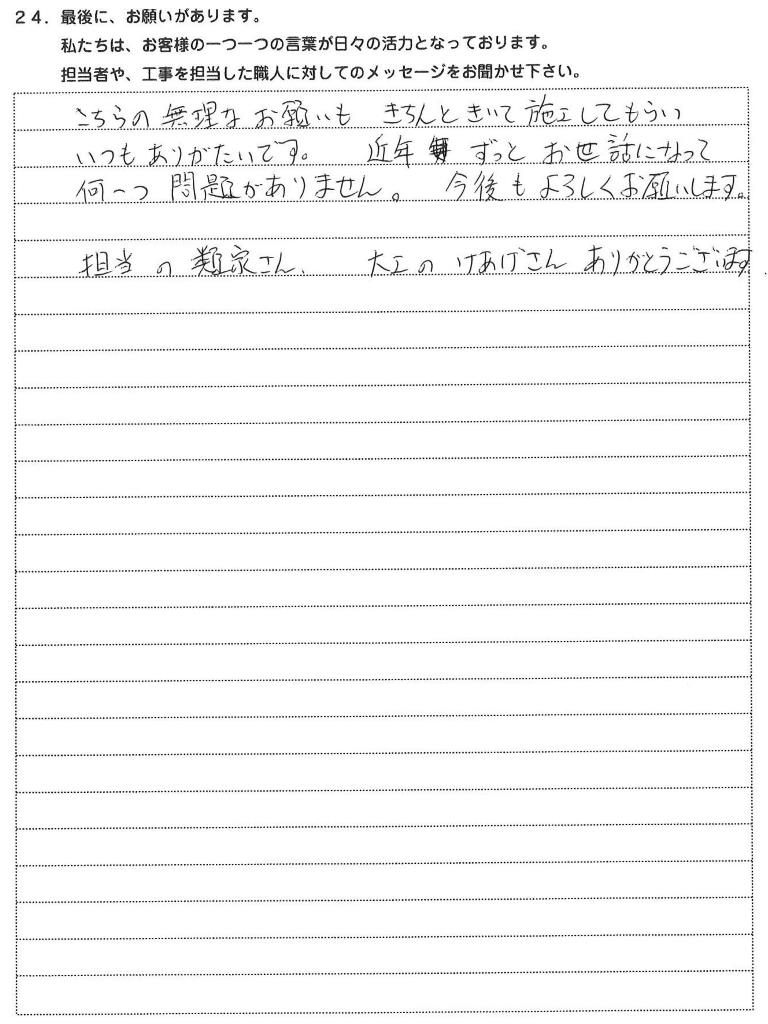 24. 最後に、お願いがあります。
私たちは、お客様の一つ一つの言葉が日々の活力となっております。
担当者や、工事を担当した職人に対してのメッセージをお聞かせ下さい。
こちらの無理なお願いも きちんときいて施工してもらい
いつもありがたいです。 近年 ずっと お世話になって
何一つ 問題がありません。 今後もよろしくお願いします。
担当の 類家さん、 大工の けあげさん ありがとうございます